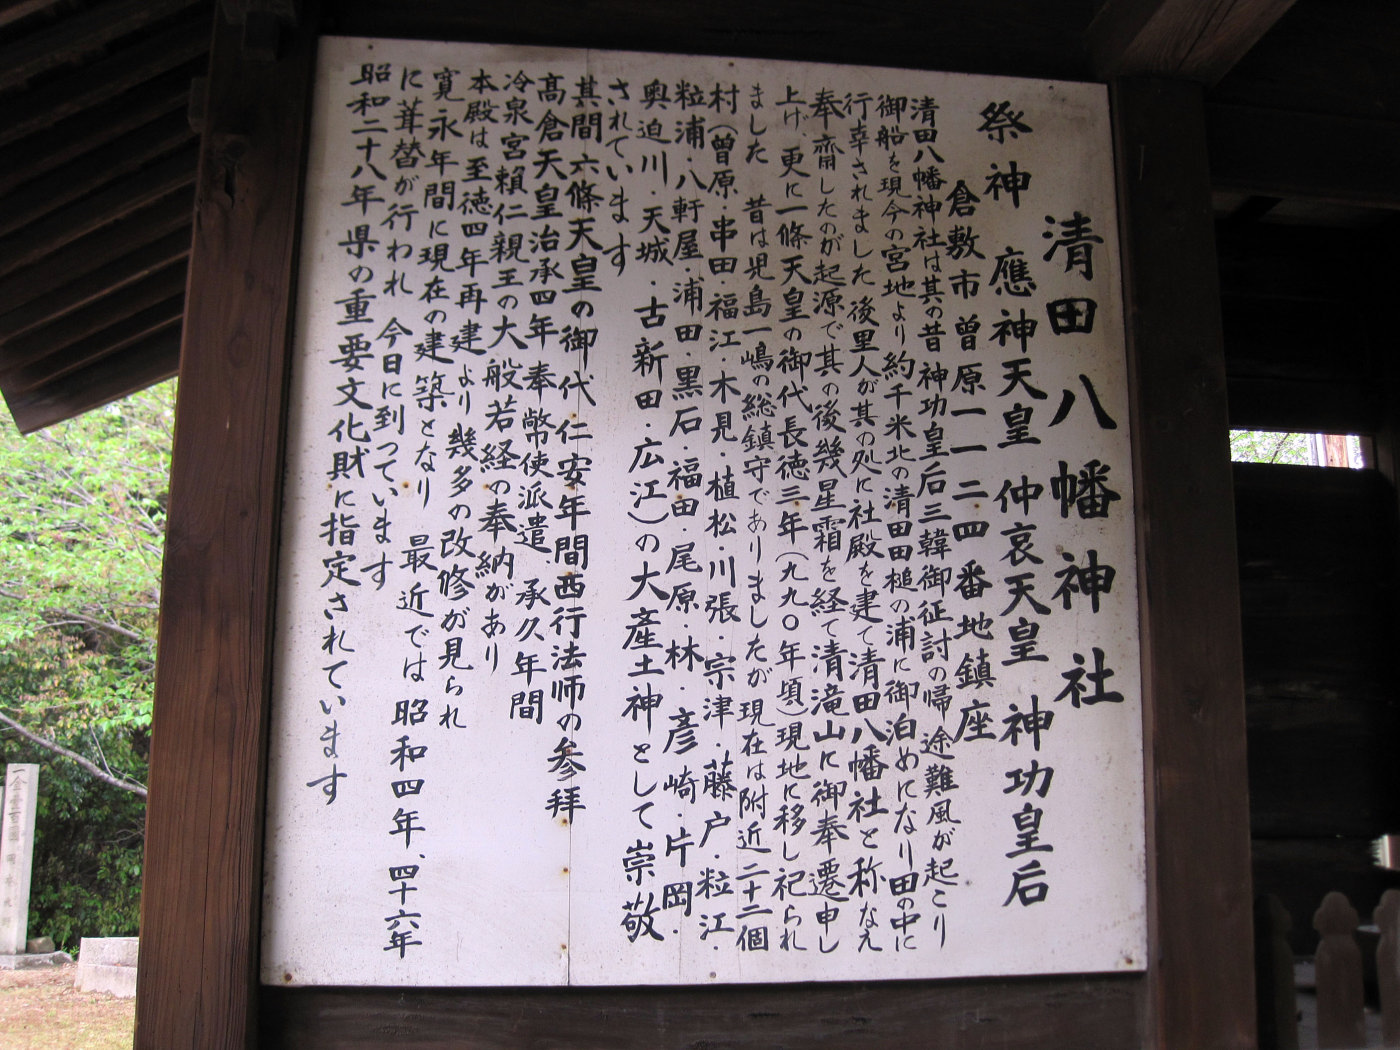 清田八幡神社
祭神 應神天皇 仲哀天皇 神功皇后
倉敷市曽原一一二四番地鎮座
清田八幡神社は其の昔神功皇后三韓御征討の帰途難風が起こり
御船を現今の宮地より約千米北の清田田槌の浦に御泊めになり田の中に
行幸されました後里人が其の処に社殿を建て清田八幡社と称なえ
奉齋したのが起源で其の後幾星霜を経て清滝山に御奉遷申し
上げ、更に一條天皇の御代長徳三年(九九〇年頃)現地に移し祀られ
ました 昔は児島一嶋の総鎮守でありましたが現在は附近二十二個
村(曽原・串田・福江・木見・植松・川張・宗津・藤戸・粒江・
粒浦・八軒屋・浦田・黒石・福田・尾原・林・彦崎・片岡・
奥迫川・天城・古新田・広江)の大產土神として崇敬
されています
其間六條天皇の御代仁安年間西行法师の参拝
髙倉天皇治承四年奉幣使派遣、承久年間
冷泉宮頼仁親王の大般若経の奉納があり
本殿は至徳四年再建より幾多の改修が見られ
寛永年間に現在の建築となり 最近では昭和四年、四十六年
に葺替が行われ 今日に到っています
昭和二十八年県の重要文化財に指定されています